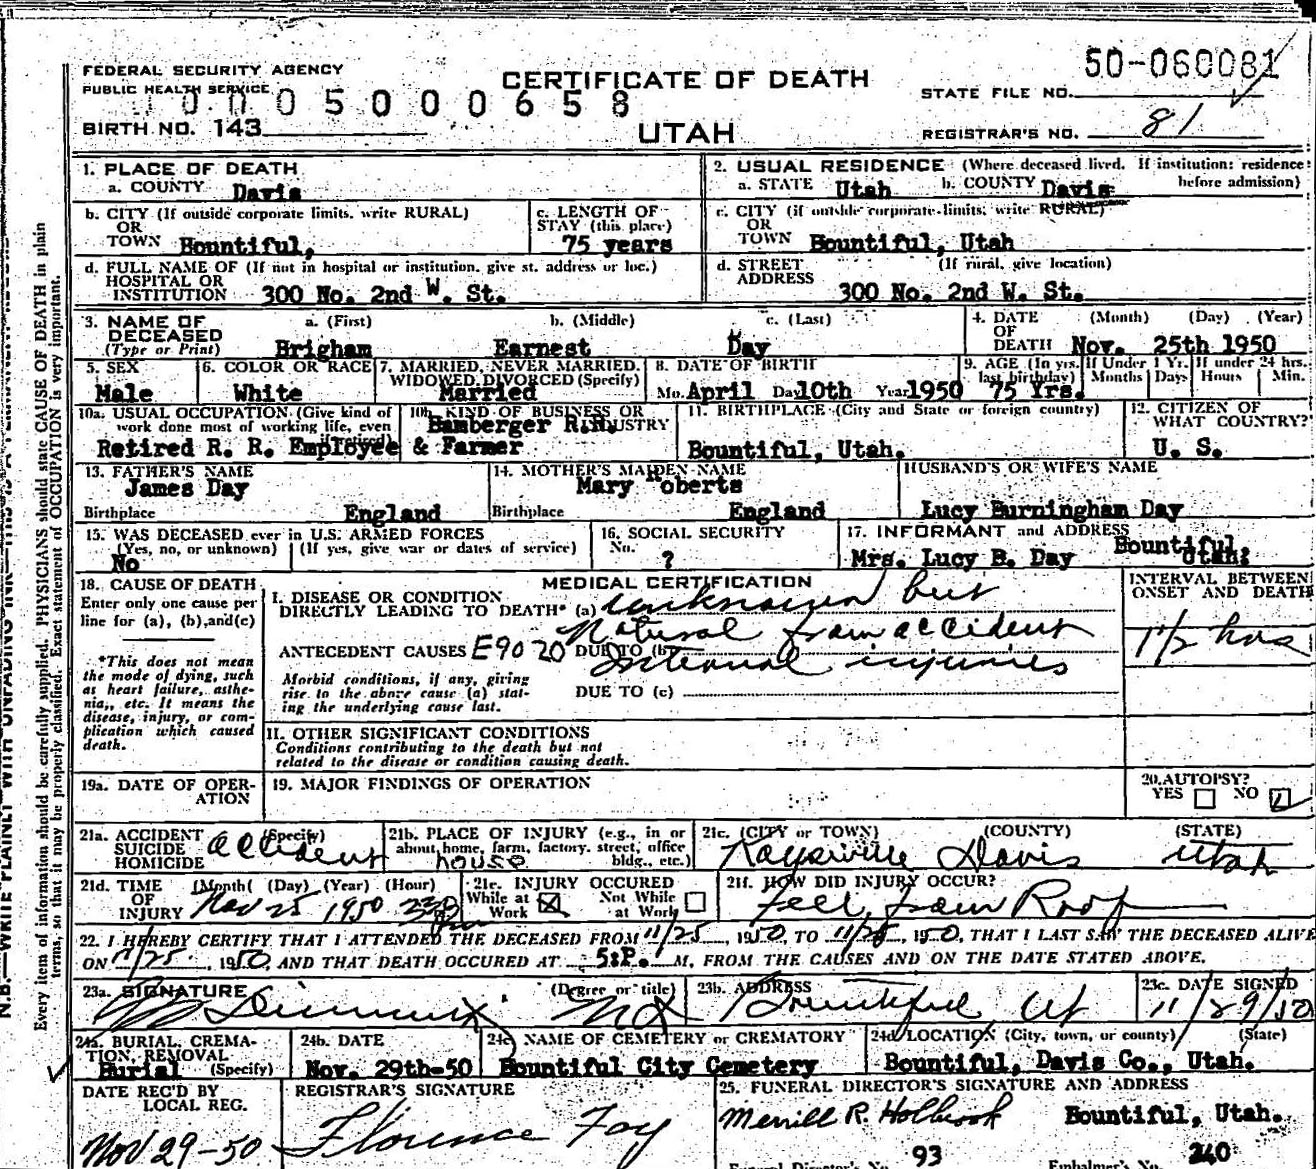 50-060081
FEDERAL SECURITY AGENCY
PUBLIC HEALTH SERVICE
CERTIFICATE OF DEATH
STATE FILE NO.
1 0 0 0 5 0 0 0 6 5 8
BIRTH NO. 143
UTAH
REGISTRAR'S NO. 81
1. PLACE OF DEATH
a. COUNTY Davis
2. USUAL RESIDENCE (Where deceased lived. If institution: residence before admission)
a. STATE Utah b. COUNTY Davis
b. CITY (If outside corporate limits, write RURAL)
OR
TOWN Bountiful,
c. LENGTH OF
STAY (this place)
75 years
c. CITY (if outside corporate limits, write RURAL)
OR
TOWN Bountiful, Utah
d. FULL NAME OF (If not in hospital or institution, give st. address or loc.)
HOSPITAL OR
INSTITUTION 300 No. 2nd W. St.
d. STREET (If rural, give location)
ADDRESS 300 No. 2nd W. St.
3. NAME OF DECEASED
(Type or Print)
a. (First) b. (Middle) c. (Last)
Brigham Earnest Day
4. DATE OF DEATH (Month) (Day) (Year)
Nov. 25th 1950
5. SEX
Male
6. COLOR OR RACE
White
7. MARRIED, NEVER MARRIED,
WIDOWED, DIVORCED (Specify)
Married
8. DATE OF BIRTH
Mo. April Da. 10th Year 1950
9. AGE (In yrs. last birthday)
75 Yrs.
If Under 1 Yr. Months Days
If under 24 hrs. Hours Min.
10a. USUAL OCCUPATION (Give kind of
work done most of working life, even
if retired)
Retired R. R. Employee & Farmer
10b. KIND OF BUSINESS OR
INDUSTRY
Bamberger R.R.
11. BIRTHPLACE (City and State or foreign country)
Bountiful, Utah.
12. CITIZEN OF
WHAT COUNTRY?
U. S.
13. FATHER'S NAME
James Day
Birthplace England
14. MOTHER'S MAIDEN NAME
Mary Roberts
Birthplace England
HUSBAND'S OR WIFE'S NAME
Lucy Burningham Day
15. WAS DECEASED ever in U.S. ARMED FORCES
(Yes, no, or unknown) (If yes, give war or dates of service)
No
16. SOCIAL SECURITY
No. ?
17. INFORMANT and ADDRESS
Mrs. Lucy B. Day Bountiful, Utah.
18. CAUSE OF DEATH
Enter only one cause per
line for (a), (b), and (c)
*This does not mean
the mode of dying, such
as heart failure, asthe-
nia, etc. It means the
disease, injury, or com-
plication which caused
death.
MEDICAL CERTIFICATION
INTERVAL BETWEEN
ONSET AND DEATH
I. DISEASE OR CONDITION
DIRECTLY LEADING TO DEATH* (a) unknown but
Natural from accident
ANTECEDENT CAUSES E9020 DUE TO (b) Internal injuries
1 1/2 hrs
Morbid conditions, if any, giving
rise to the above cause (a) stat-
ing the underlying cause last.
DUE TO (c)
II. OTHER SIGNIFICANT CONDITIONS
Conditions contributing to the death but not
related to the disease or condition causing death.
19a. DATE OF OPER-
ATION
19. MAJOR FINDINGS OF OPERATION
20. AUTOPSY?
YES NO
21a. ACCIDENT (Specify)
SUICIDE
HOMICIDE
accident
21b. PLACE OF INJURY (e.g., in or
about home, farm, factory, street, office
bldg., etc.)
house
21c. (CITY or TOWN) (COUNTY) (STATE)
Kaysville Davis Utah
21d. TIME OF INJURY (Month) (Day) (Year) (Hour)
Nov 25 1950
21e. INJURY OCCURED
While at Work
Not While at Work
21f. HOW DID INJURY OCCUR?
Fell from Roof
22. I HEREBY CERTIFY THAT I ATTENDED THE DECEASED FROM 11/25, 1950, TO 11/25, 1950, THAT I LAST SAW THE DECEASED ALIVE
ON 11/25, 1950, AND THAT DEATH OCCURED AT 5:P. M, FROM THE CAUSES AND ON THE DATE STATED ABOVE.
23a. SIGNATURE (Degree or title)
23b. ADDRESS
Bountiful Ut
23c. DATE SIGNED
11/29/50
24a. BURIAL, CREMA-
TION, REMOVAL
Burial (Specify)
24b. DATE
Nov. 29th-50
24c. NAME OF CEMETERY or CREMATORY
Bountiful City Cemetery
24d. LOCATION (City, town, or county) (State)
Bountiful, Davis Co., Utah.
DATE REC'D BY
LOCAL REG.
Nov 29-50
REGISTRAR'S SIGNATURE
Florence Foy
25. FUNERAL DIRECTOR'S SIGNATURE AND ADDRESS
Merrill R. Holbrook Bountiful, Utah.
Funeral Director's No. 93 Embalmer's No. 240
Every item of information should be carefully supplied. PHYSICIANS should state CAUSE OF DEATH in plain
terms, so that it may be properly classified. Exact statement of OCCUPATION is very important.